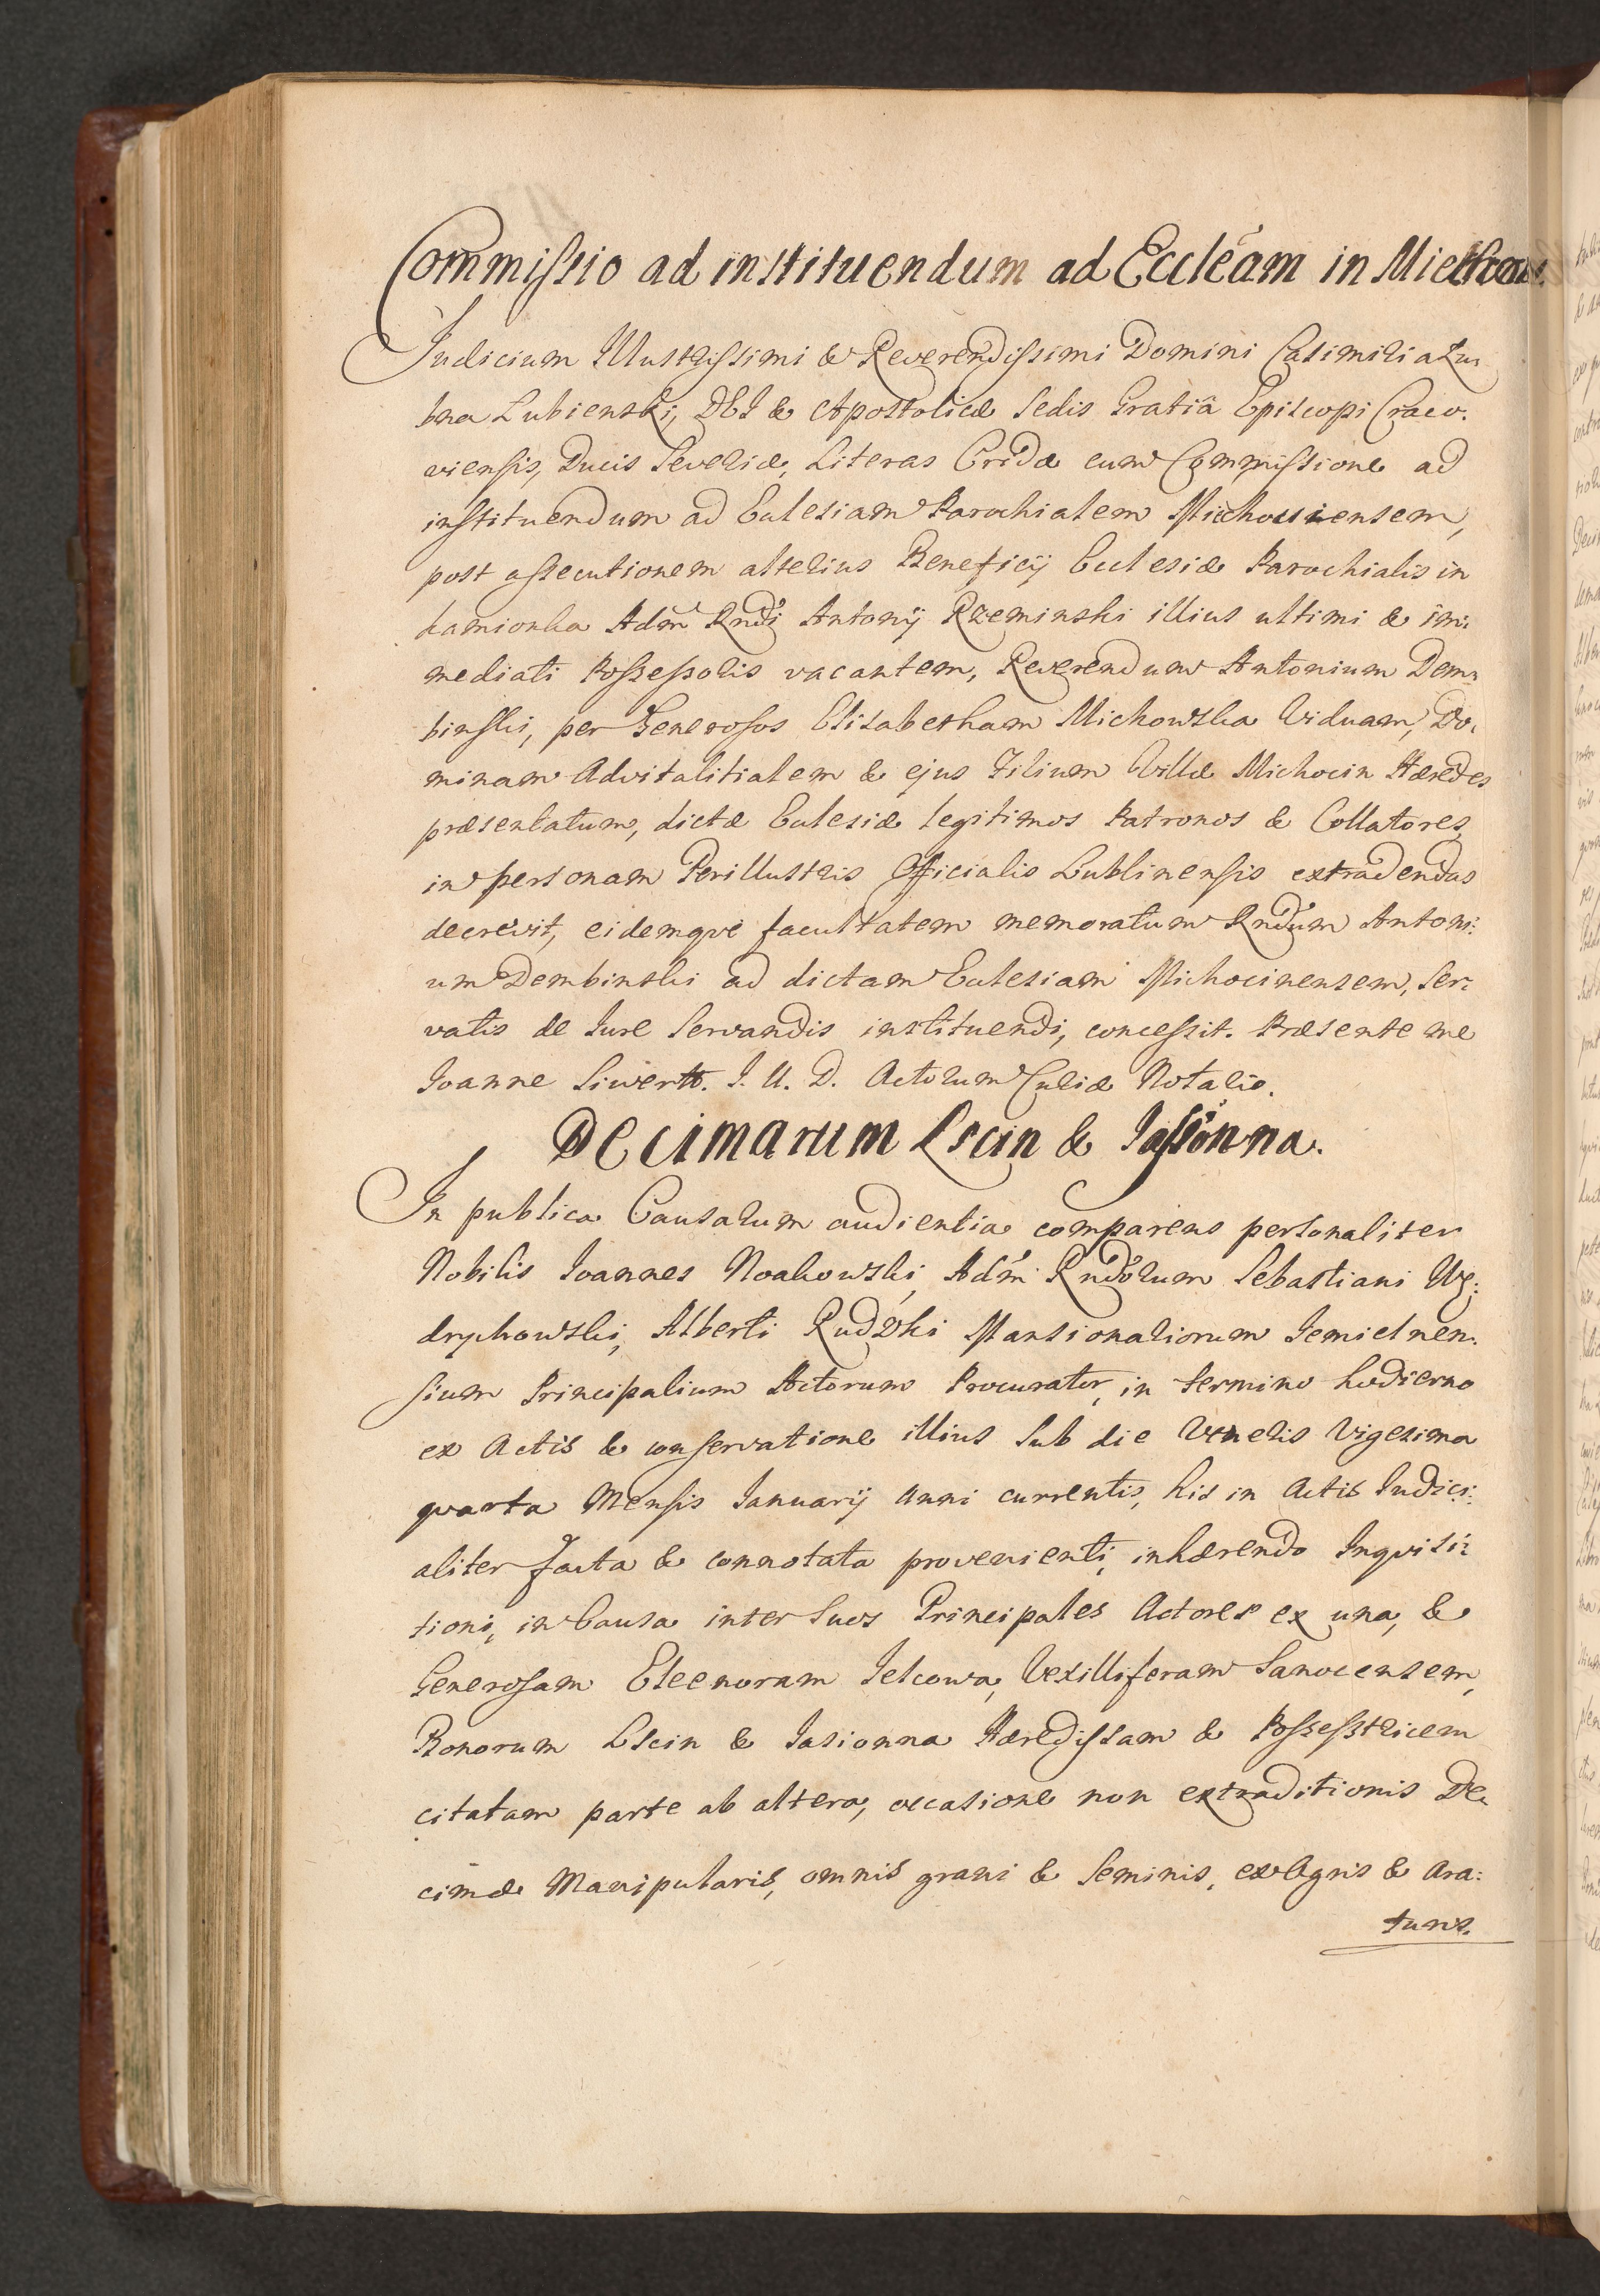 Commissio ad instituendum ad Eccleam in
Judicium Illustrissimi & Reverendissimi Domini Casimiri a Lu-
bna Lubienski, DEI & Apostolicæ Sedis Gratiâ Episcopi Craco-
viensis, Ducis Severiæ, Literas Cridæ cum Commissione ad
instituendum ad Ecclesiam Parochialem Michoviensem,
post assecutionem alterius Beneficij Ecclesiæ Parochialis in
Kamionka Adm Rndi Antonij Rzeminski illius ultimi & im-
mediati Possessoris vacantem, Reverendum Antonium Dem-
binski, per Generosos Elisabetham Michowska Viduam, Do-
minam Advitalitialem & ejus Filium Villæ Michocin Hæredes
præsentatum, dictæ Ecclesiæ legitimos Patronos & Collatores,
in personam Perillustris Officialis Lublinensis extradendas
decrevit, eidemqve facultatem memoratum Rndum Antoni-
um Dembinski ad dictam Ecclesiam Michocinensem, ser-
vatis de Jure servandis instituendi, concessit. Præsente me
Joanne Siwertt. J. U. D. Actorum Curiæ Notario.
Decimarum Lscin & Jasionna.
In publica Causarum audientia comparens personaliter
Nobilis Joannes Noakowski, Adm Rndorum Sebastiani We-
drychowski, Alberti Rudzki Mansionariorum Jemielnen-
sium Principalium Actorum Procurator, in termino hodierno
ex Actis & conservatione illius sub die Veneris Vigesima
qvarta Mensis Januarij anni currentis, his in Actis Judici-
aliter facta & connotata provenienti, inhærendo Inqvisi-
tioni, in Causa inter suos Principales Actores ex una, &
Generosam Eleenoram Jelcowa, Vexilliferam Sanocensem,
Bonorum Lscin & Jasionna Hæredissam & Possesstricem
citatam parte ab altera, occasione non extraditionis De-
cimæ Manipularis, omnis grani & seminis, ex Agris & Ara-